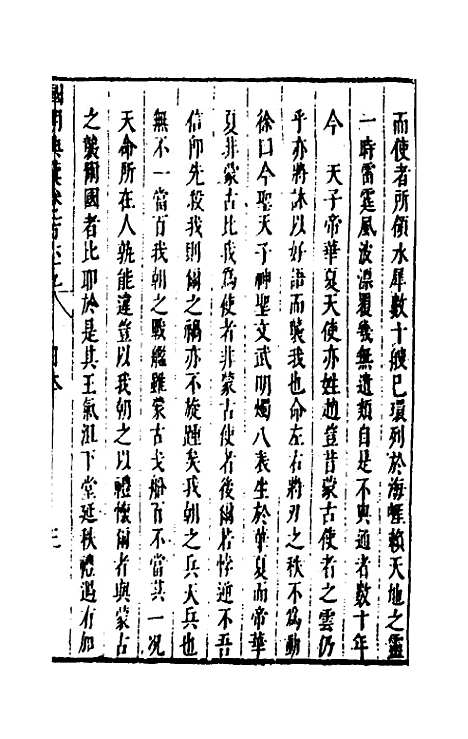 而使者所領水犀數十艘已環列於海崖賴天地之靈
一時雷霆風波漂覆幾無遺類自是不與通者數十年
今　天子帝華夏天使亦姓趙豈昔蒙古使者之雲仍
乎亦將訹以好語而襲我也命左右將刃之秩不為動
徐曰今聖天子神聖文武明燭八表生於華夏而帝華
夏非蒙古比我為使者非蒙古使者後爾若悖逆不吾
信即先殺我則爾之禍亦不旋踵矣我朝之兵天兵也
無不一當百我朝之戰艦雖蒙古戈船百不當其一况
天命所在人孰能違豈以我朝之以禮懷爾者與蒙古
之襲爾國者比耶於是其王氣沮下堂延秩禮遇有加
國朝典彙卷之百六十九　日本　三